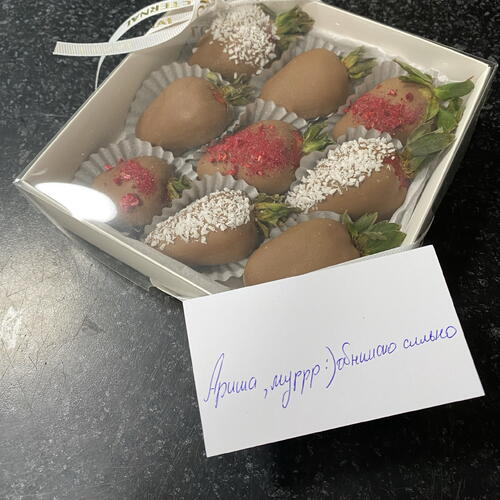 Ариша, муррр:) обнимаю сильно